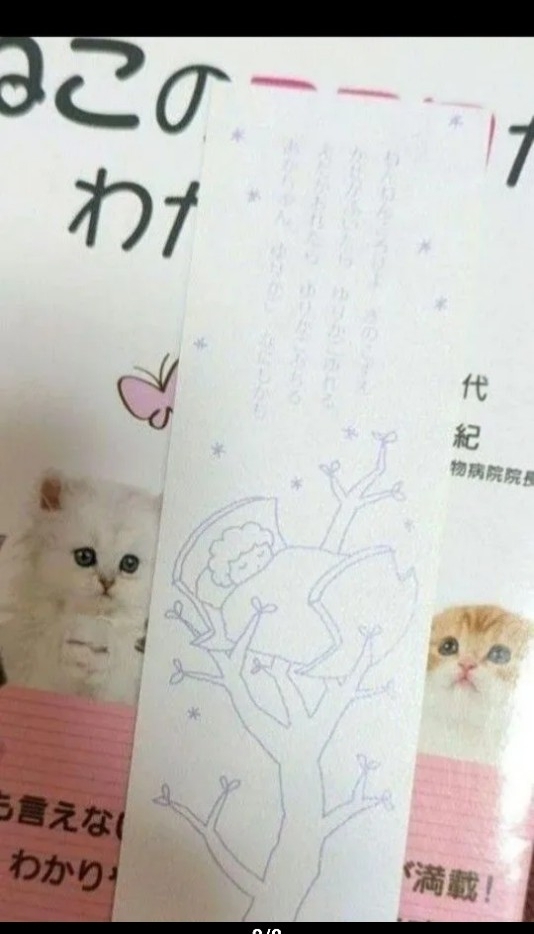 ねこの
わ
ねんねんころりよ きのこずえ
かぜがふいたら ゆりかごゆれる
えだがおれたら ゆりかごおちる
あかちゃん ゆりかご なにもかも
代
紀
物病院院長
も言えない
わかり
満載!